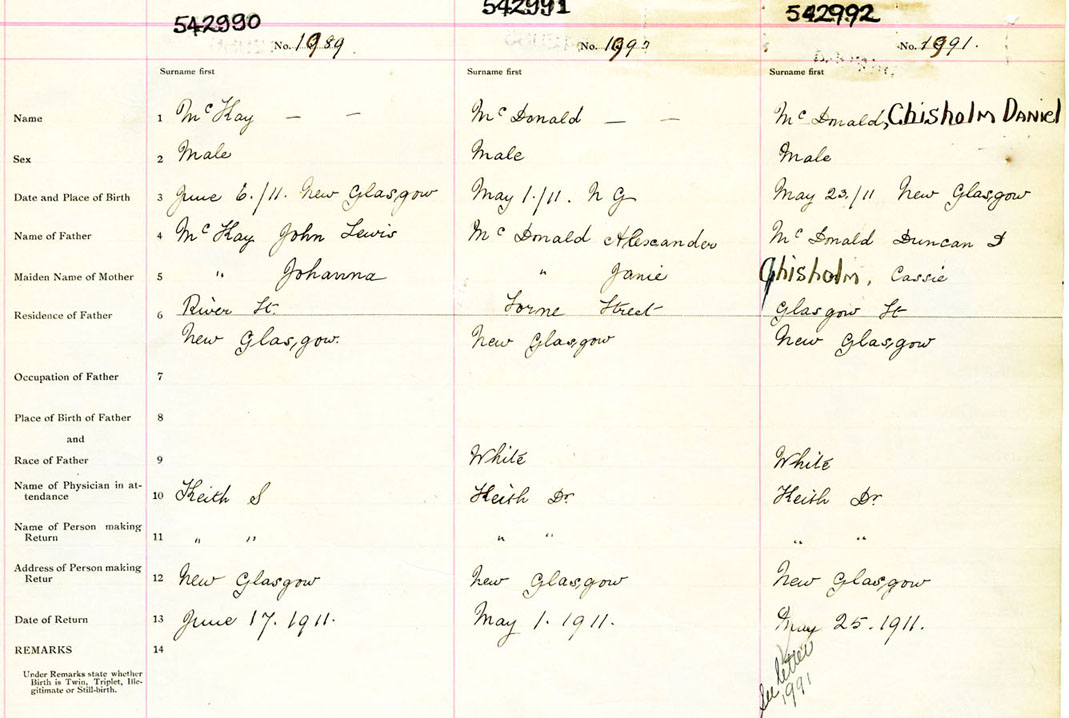 542990 542991 542992
No. 1989 No. 199 No. 1991.
Surname first Surname first Surname first
Name 1 McKay — — McDonald — — McDonald, Chisholm Daniel
Sex 2 Male Male Male
Date and Place of Birth 3 June 6./11. New Glasgow May 1./11. N G May 23./11 New Glasgow
Name of Father 4 McKay John Lewis McDonald Alexander McDonald Duncan
Maiden Name of Mother 5 " Johanna " Janie Chisholm, Cassie
Residence of Father 6 River St. Lorne Street Glasgow St
New Glasgow. New Glasgow New Glasgow
Occupation of Father 7
Place of Birth of Father 8
and
Race of Father 9 White White
Name of Physician in at-
tendance 10 Keith S Keith Dr Keith Dr.
Name of Person making
Return 11 " " " " " "
Address of Person making
Retur 12 New Glasgow New Glasgow New Glasgow
Date of Return 13 June 17. 1911. May 1. 1911. May 25. 1911.
REMARKS 14
Under Remarks state whether
Birth is Twin, Triplet, Ille-
gitimate or Still-birth.
See letter
1991